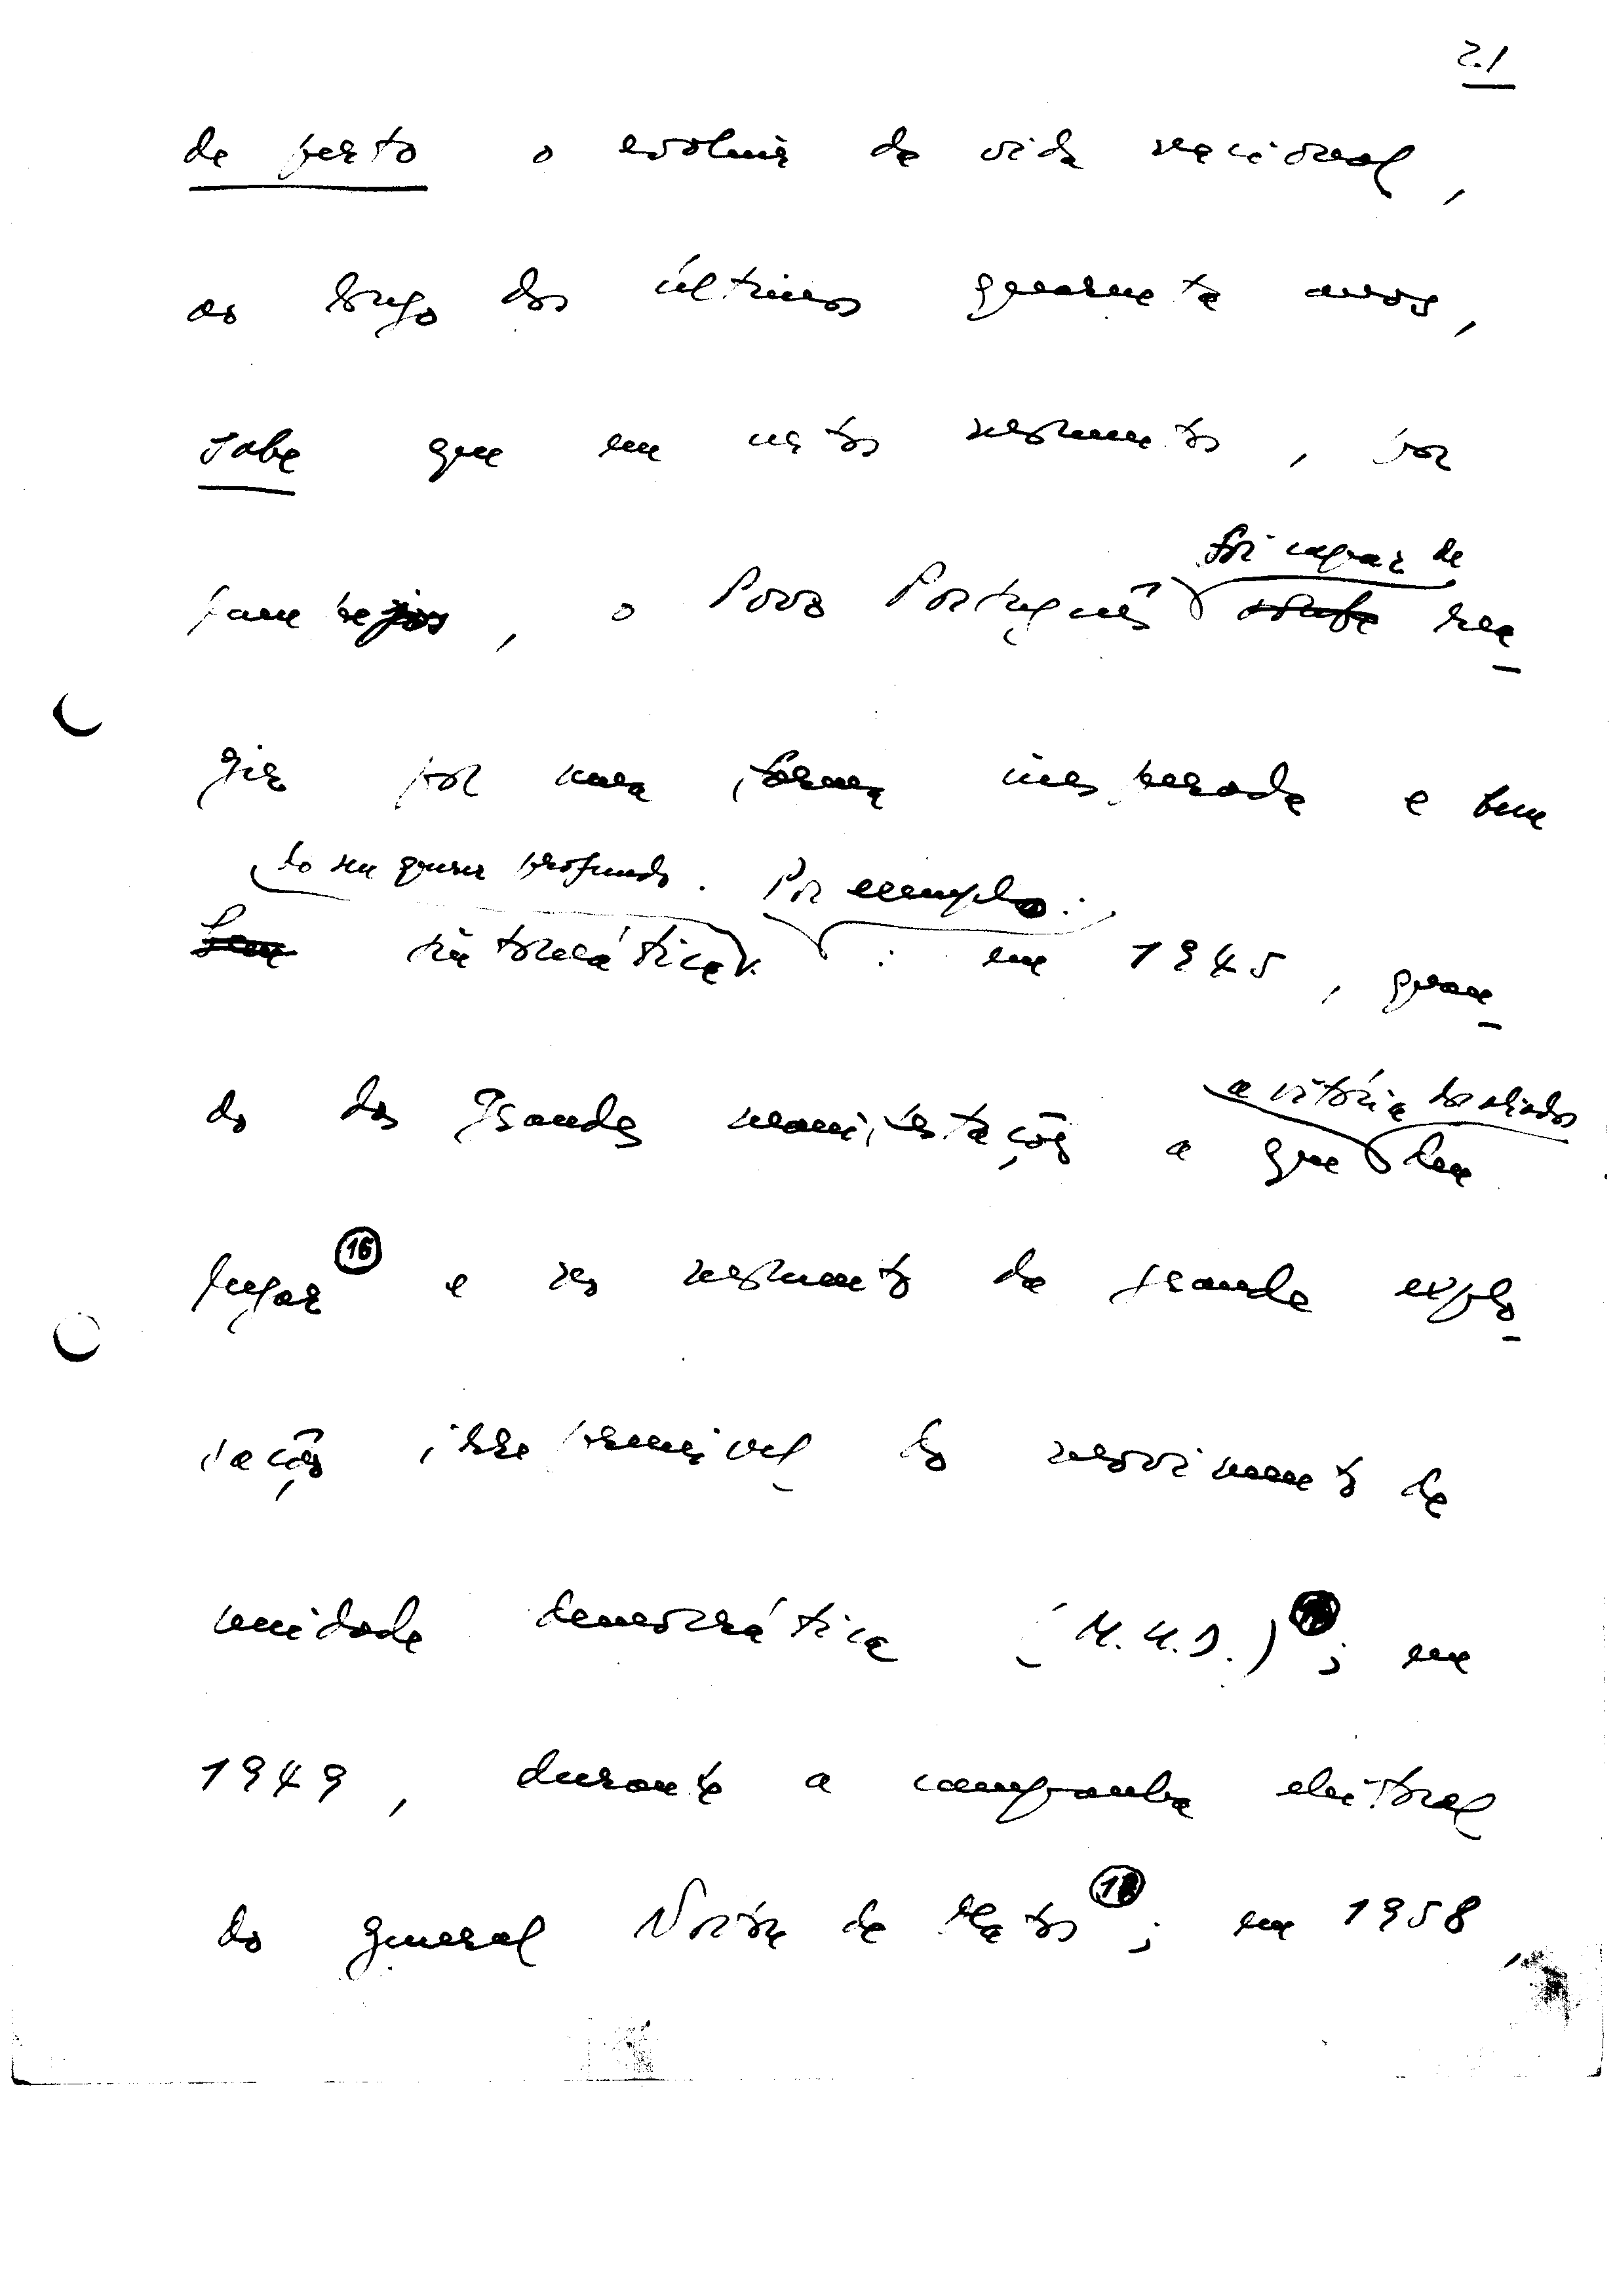 21
de perto o evoluir da vida nacional,
ao longo dos últimos quarenta anos,
sabe que em certos momentos, por
lampejos, o Povo Português
foi capaz de
rea-
gir por uma forma inesperada e bem
do seu querer profundo. Por exemplo:
Sem sintomática : em 1945, quan-
do das grandes manifestações a que
a vitória dos aliados
deu
lugar 16 e no momento da grande explo-
são irreprimível do movimento de
unidade democrática (M.U.D.) ; em
1949, durante a campanha eleitoral
do general Norton de Matos ; em 1958,